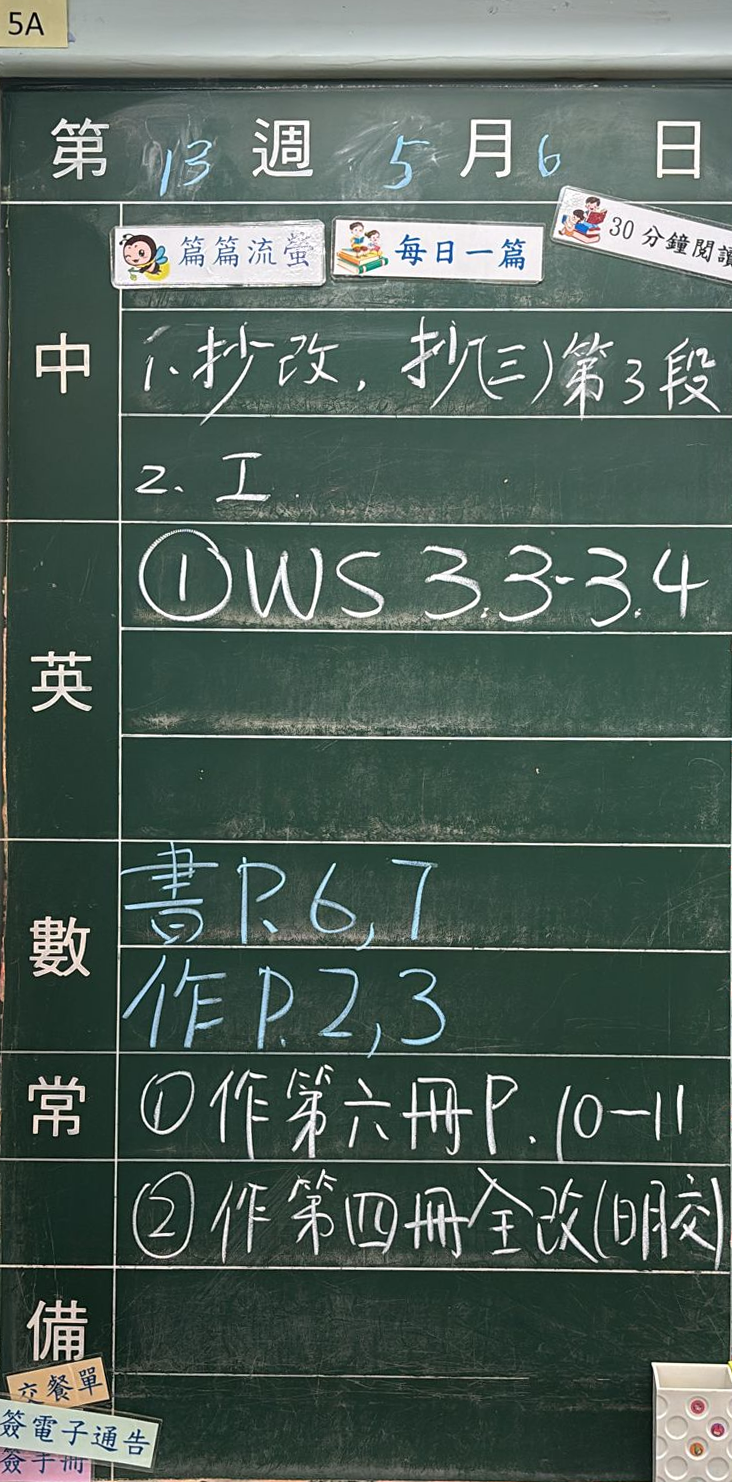 5A
第 13 週 5 月 6 日
篇篇流螢 每日一篇 30分鐘閱讀
中
1. 抄改, 抄(三)第3段
2. 工
英
① WS 3.3-3.4
數
書 P. 6, 7
作 P. 2, 3
常
① 作第六冊 P. 10-11
② 作第四冊全改(明交)
備
交餐單
簽電子通告
簽手冊